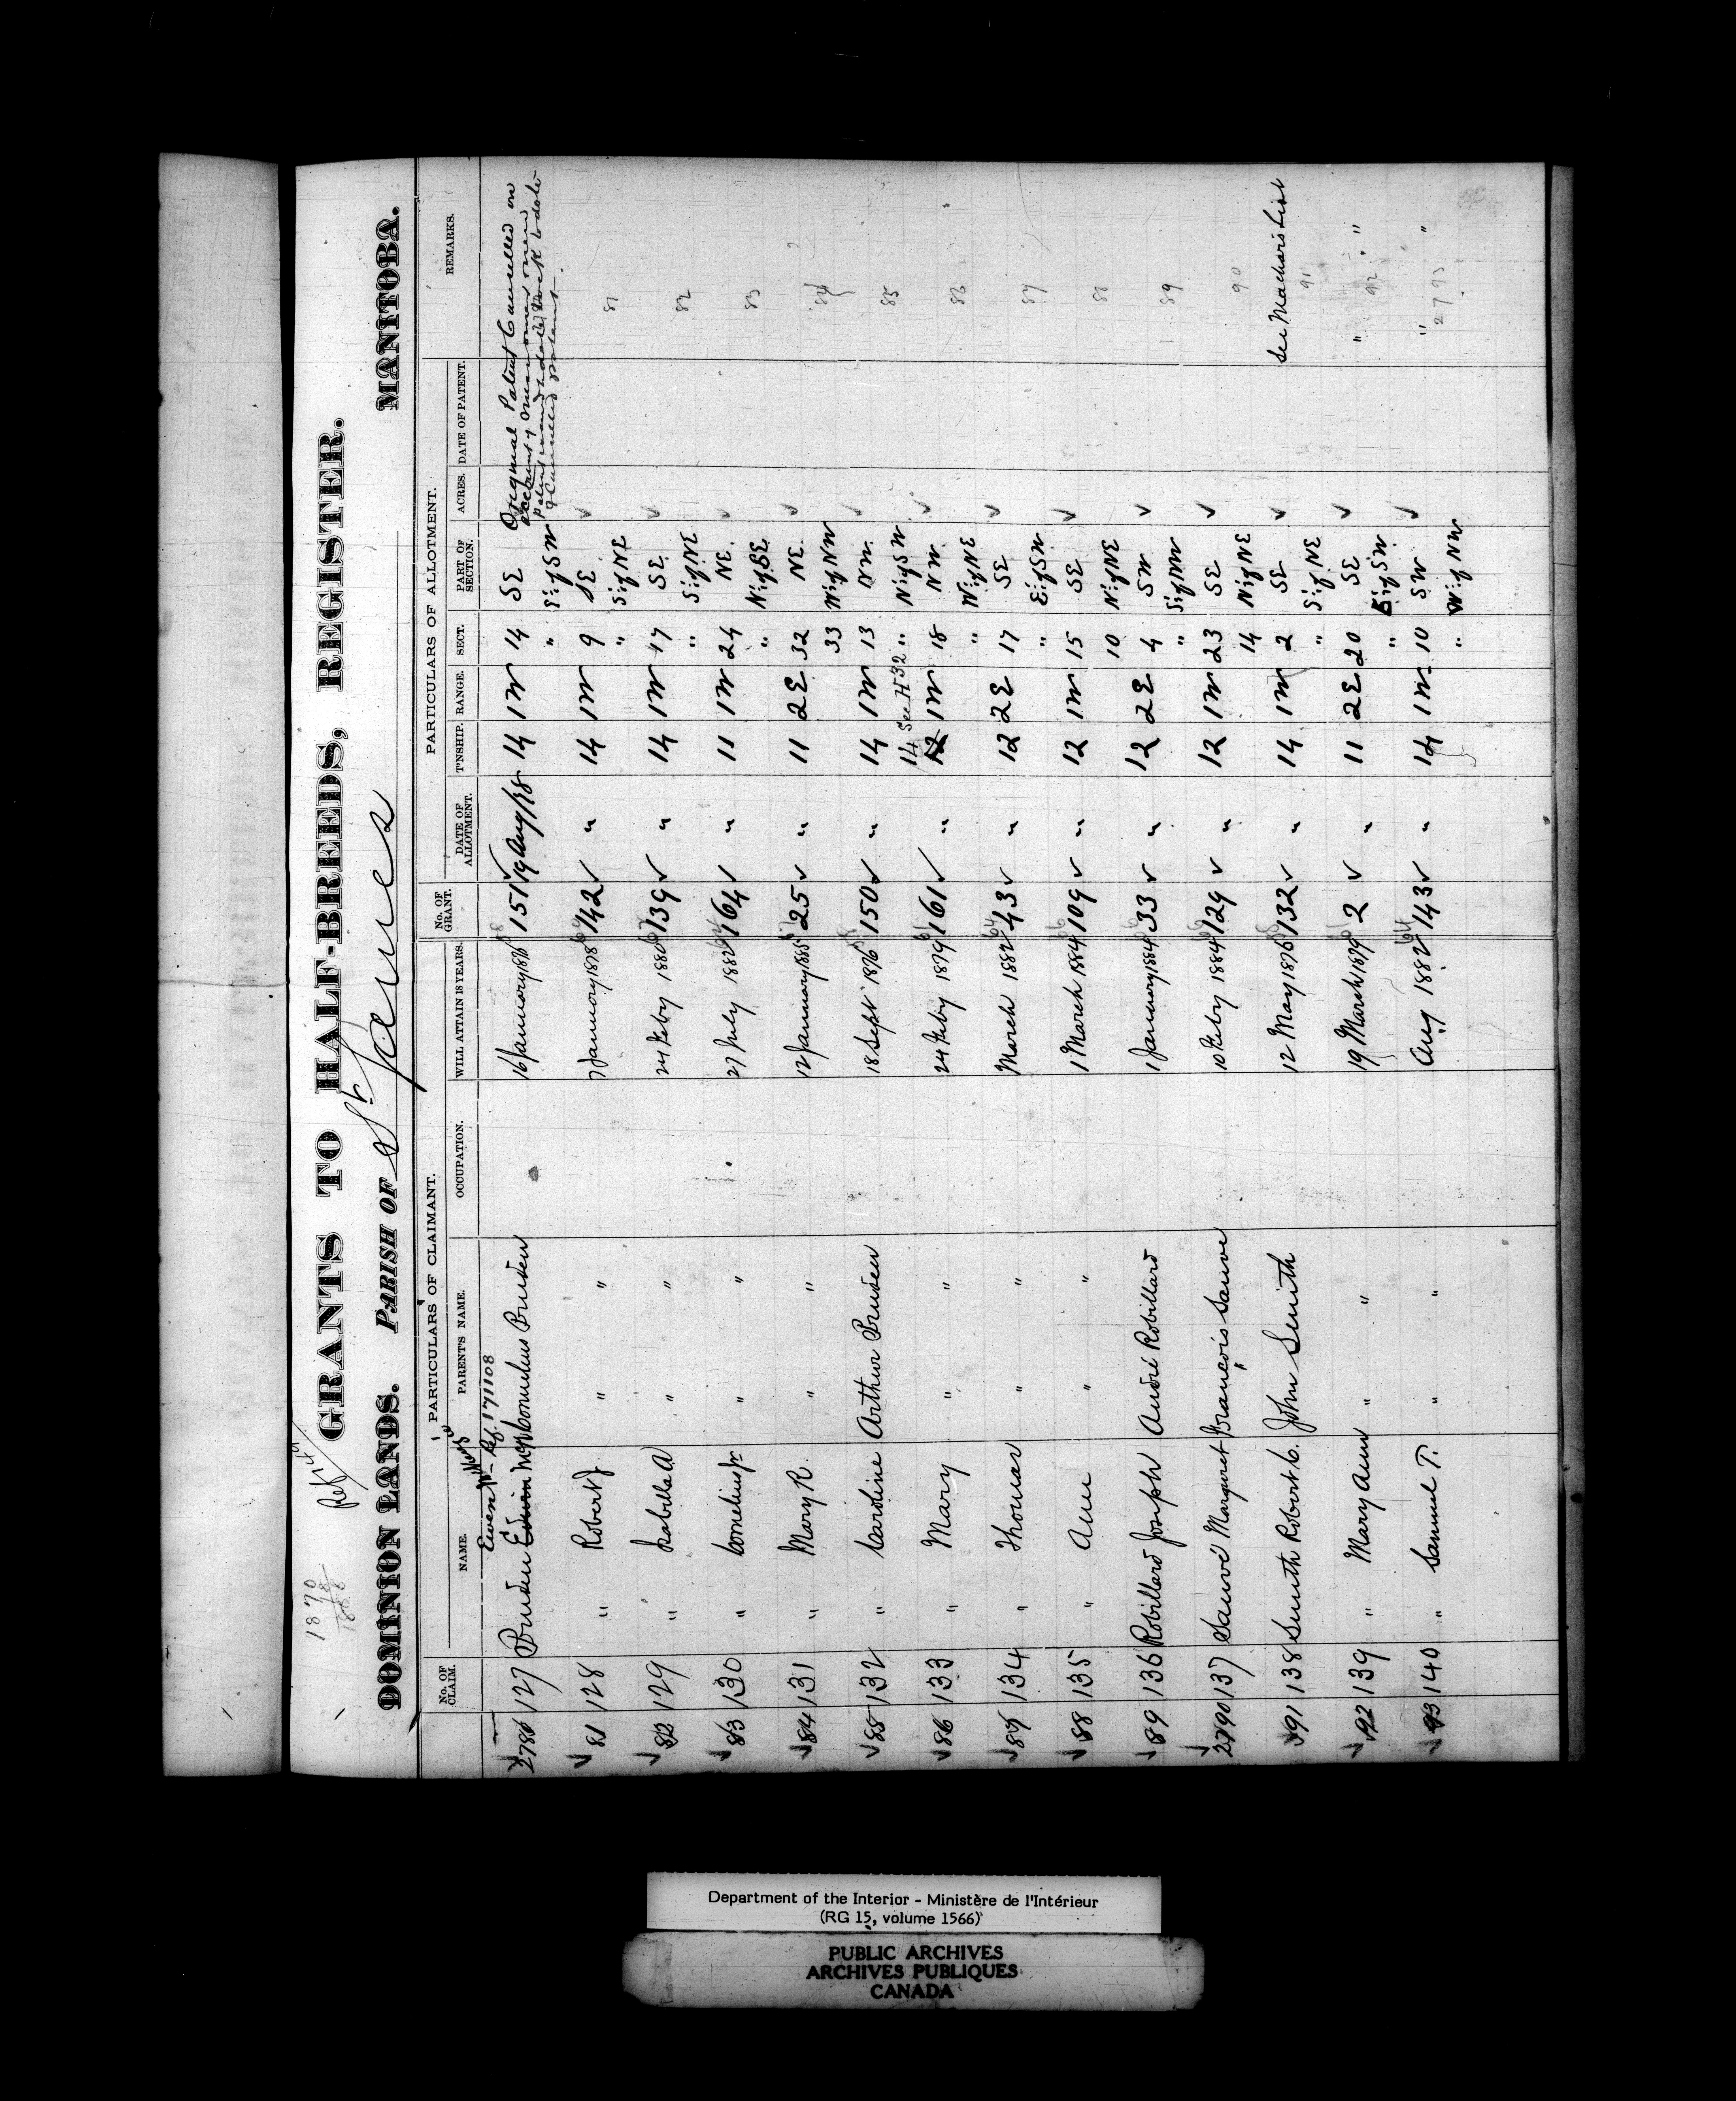 1870
18
1888
Ref
GRANTS TO HALF-BREEDS, REGISTER.
DOMINION LANDS. PARISH OF St James MANITOBA.
PARTICULARS OF CLAIMANT. PARTICULARS OF ALLOTMENT.
No. OF CLAIM. NAME. PARENT'S NAME. OCCUPATION. WILL ATTAIN 18 YEARS. No. OF GRANT. DATE OF ALLOTMENT. T'NSHIP. RANGE. SECT. PART OF SECTION. ACRES. DATE OF PATENT. REMARKS.
Ewen Ref. 171108
2780 127 Pruden Edwin Cornelius Pruden 16 January 1876 151 19 Aug/78 14 1W 14 SE Original Patent Cancelled on
" S½ of SW
81 128 " Robert J. " " 7 January 1878 142 " 14 1W 9 SE 81
" S½ of NE
82 129 " Isabilla A " " 24 Feby 1880 139 " 14 1W 17 SE 82
" S½ of NE
83 130 " Cornelius Jr " " 27 July 1882 164 " 11 1W 24 NE 83
" N½ of SE
84 131 " Mary R. " " 12 January 1885 25 " 11 2E 32 NE 84
33 W½ of NW
85 132 " Caroline Arthur Pruden 18 Sept 1876 150 " 14 1W 13 NW 85
14 See H 32 " N½ of SW
86 133 " Mary " " 24 Feby 1879 161 " 12 1W 18 NW 86
" W½ of NE
87 134 " Thomas " " March 1882 43 " 12 2E 17 SE 87
" E½ of SW
88 135 " Ann " " 1 March 1884 109 " 12 1W 15 SE 88
10 N½ of NE
89 136 Robillard Joseph André Robillard 1 January 1884 33 " 12 2E 4 SW 89
" S½ of NW
2790 137 Sauvé Margaret François Sauve 10 Feby 1884 129 " 12 1W 23 SE 90
14 N½ of NE
91 138 Smith Robert C. John Smith 12 May 1876 132 " 14 1W 2 SE See Machar's List
" S½ of NE 91
92 139 " Mary Ann " " 19 March 1879 2 " 11 2E 20 SE " "
" E½ of SW 92
93 140 " Samuel T. " " Aug 1882 143 " 14 1W 10 SW " "
" W½ of NW 2793
Department of the Interior - Ministère de l'Intérieur
(RG 15, volume 1566)
PUBLIC ARCHIVES
ARCHIVES PUBLIQUES
CANADA